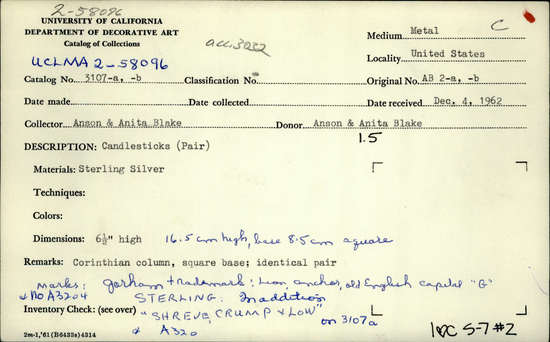 2-58096
UNIVERSITY OF CALIFORNIA
DEPARTMENT OF DECORATIVE ART
Catalog of Collections
acc.3032
Medium Metal C
Locality United States
UCLMA 2-58096
Catalog No. 3107-a, -b Classification No. Original No. AB 2-a, -b
Date made Date collected Date received Dec. 4, 1962
Collector Anson & Anita Blake Donor Anson & Anita Blake
DESCRIPTION: Candlesticks (Pair) 1.5
Materials: Sterling Silver
Techniques:
Colors:
Dimensions: 6½" high 16.5 cm high, base 8.5 cm square
Remarks: Corinthian column, square base; identical pair
marks: Gorham trademark; Lion, anchor, old English capital "G"
& No A3204 STERLING. In addition
Inventory Check: (see over) "SHREVE, CRUMP & LOW" on 3107a
& A320
2m-1,'61(B6433s)4314
LOC S-7#2